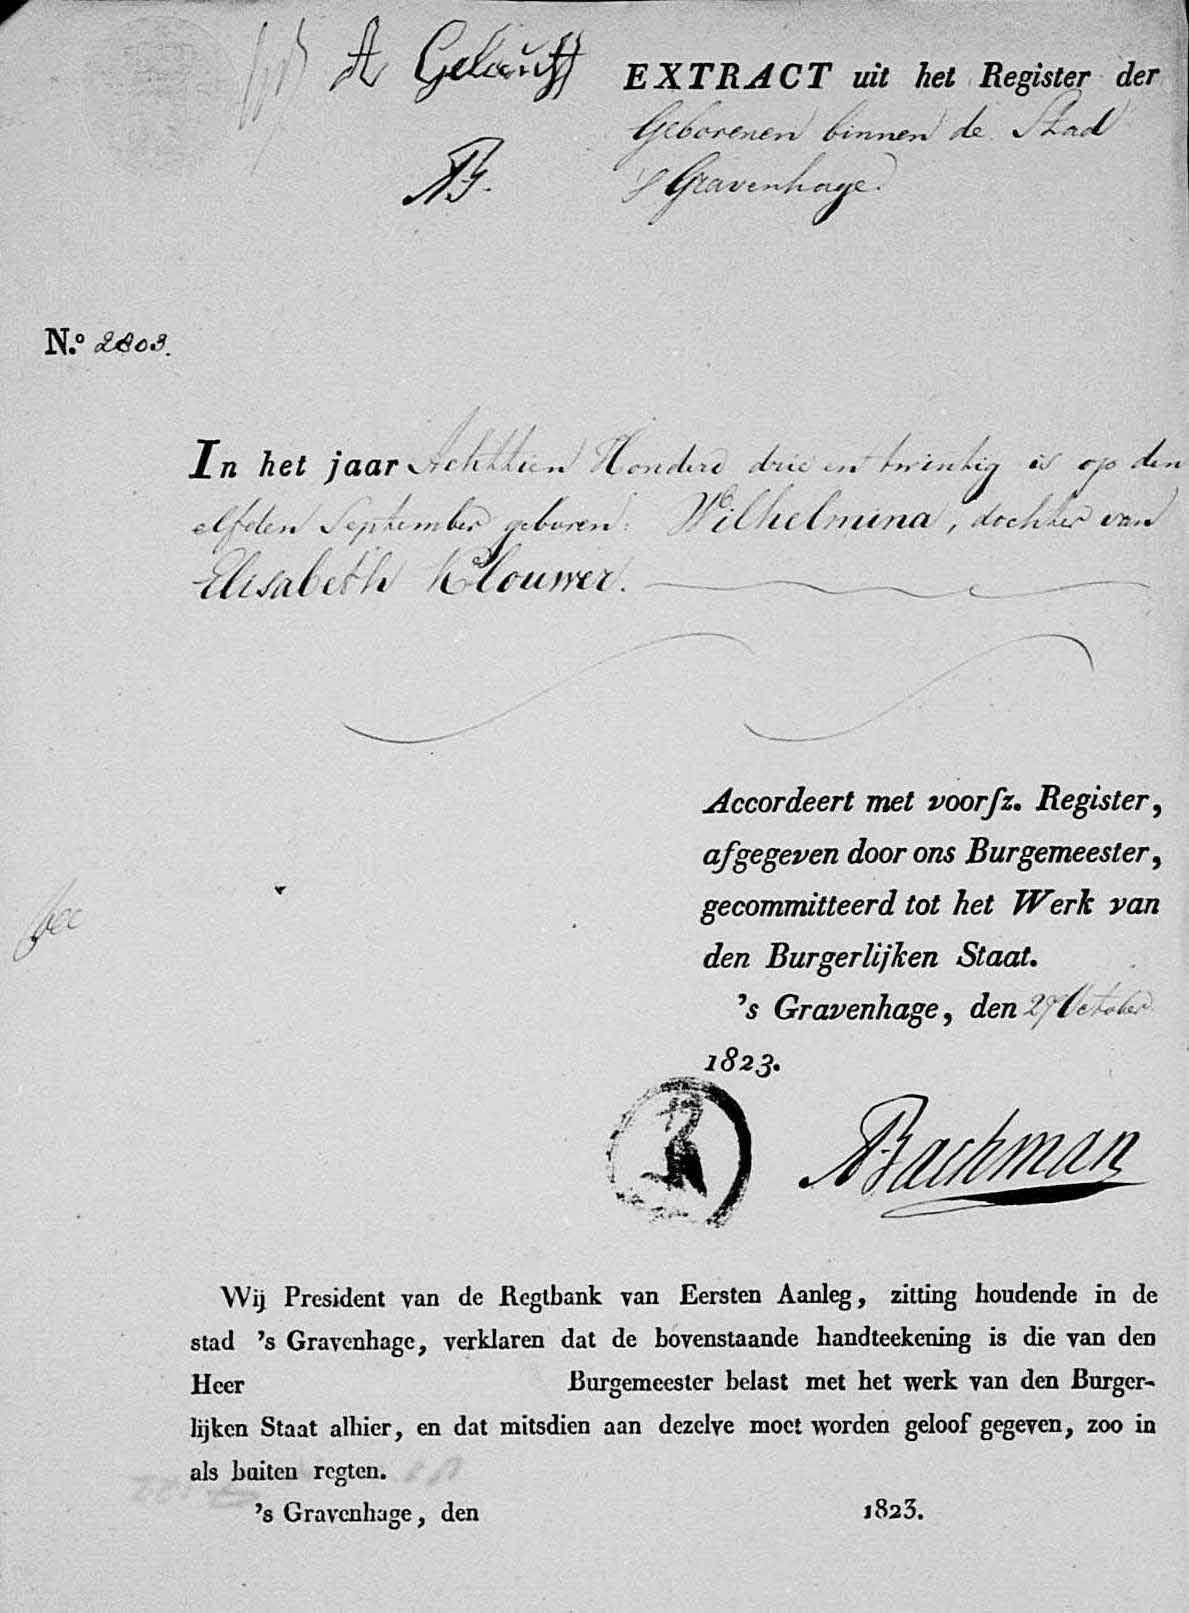 EXTRACT uit het Register der
Geborenen binnen de Stad
's Gravenhage.
N.o 2803.
In het jaar Achttien Honderd drie en twintig is op den
elfden September geboren: Wilhelmina, dochter van
Elisabeth Klouwer.
Accordeert met voorſz. Register,
afgegeven door ons Burgemeester,
gecommitteerd tot het Werk van
den Burgerlijken Staat.
's Gravenhage, den 27 October
1823.
ABachman
Wij President van de Regtbank van Eersten Aanleg, zitting houdende in de
stad 's Gravenhage, verklaren dat de bovenstaande handteekening is die van den
Heer Burgemeester belast met het werk van den Burger-
lijken Staat alhier, en dat mitsdien aan dezelve moet worden geloof gegeven, zoo in
als buiten regten.
's Gravenhage, den 1823.